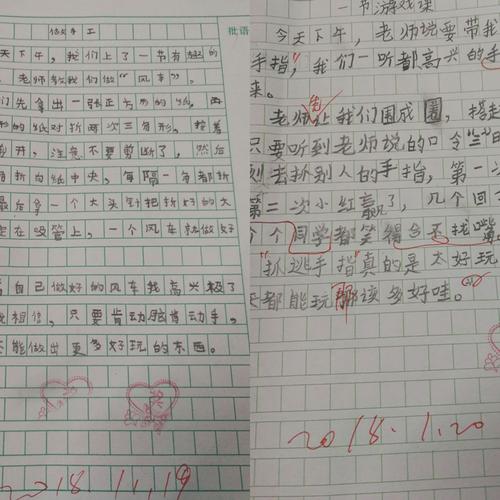 做手工
批语
天下午，我们上了一节有趣的
老师教我们做“风车”。
们先拿出一张正方形的纸，再
形的纸对折两次三角形。接着
剪开，注意不要剪断了，然后
折向纸中央，每隔一角都折
最后拿一个大头针把折好的大
定在吸管上，一个风车就做好
自己做好的风车我高兴极了
我相信，只要肯动脑肯动手，
能做出更多好玩的东西。
2018.11.19
一节游戏课
今天下午，老师说要带我
手指”，我们一听都高兴的手
来。
老师先让我们围成圈，搭起
只要听到老师说的口令“三”
刻去抓别人的手指，第一次
第二次小红赢了，几个回
个个同学都笑得合不找嘴
“抓逃手指”真的是太好玩
天都能玩那该多好哇。
2018.1.20